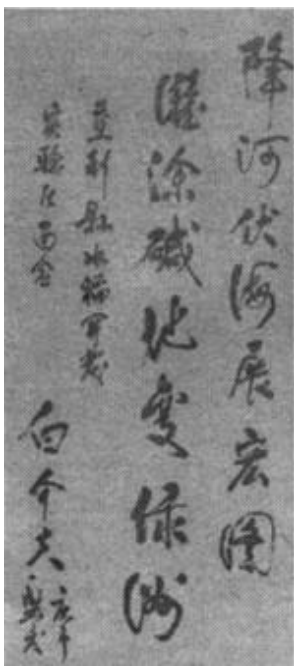 降河伏海展宏图
滩涂碱地变绿洲
垦利县水稻开发
实验区
白介夫
庚午